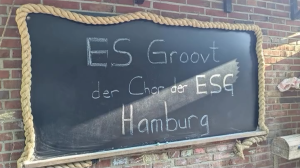 ES Groovt
der Chor der ESG
Hamburg